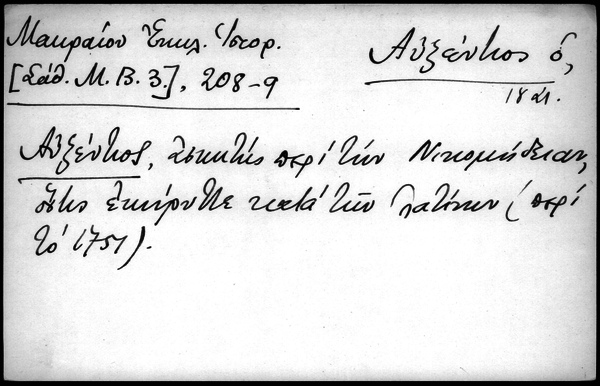 Μακραίου Ἐκκλ. Ἱστορ.
[Σάθ. Μ. Β. 3.], 208-9
Αὐξέντιος ὁ,
18 αι.
Αὐξέντιος, ἀσκητής περί τήν Νικομήδειαν,
ὅστις ἐκήρυττε κατά τῶν Λατίνων (περί
τό 1751).